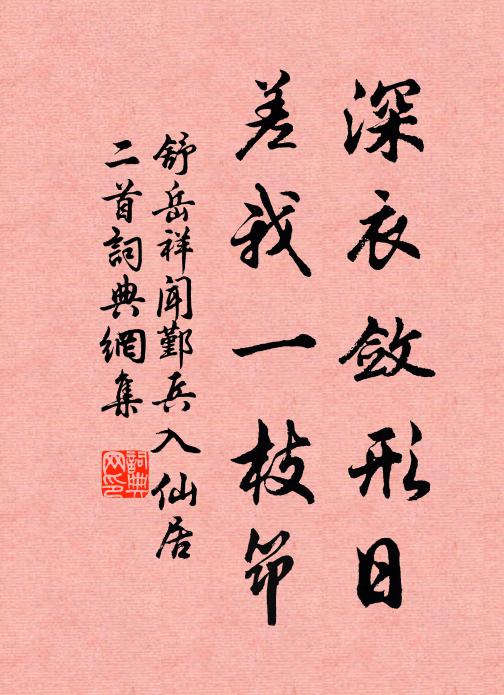 深衣斂形日
差我一枝筇
舒岳祥聞鄞兵入仙居
二首詞典網集
詞典
网印